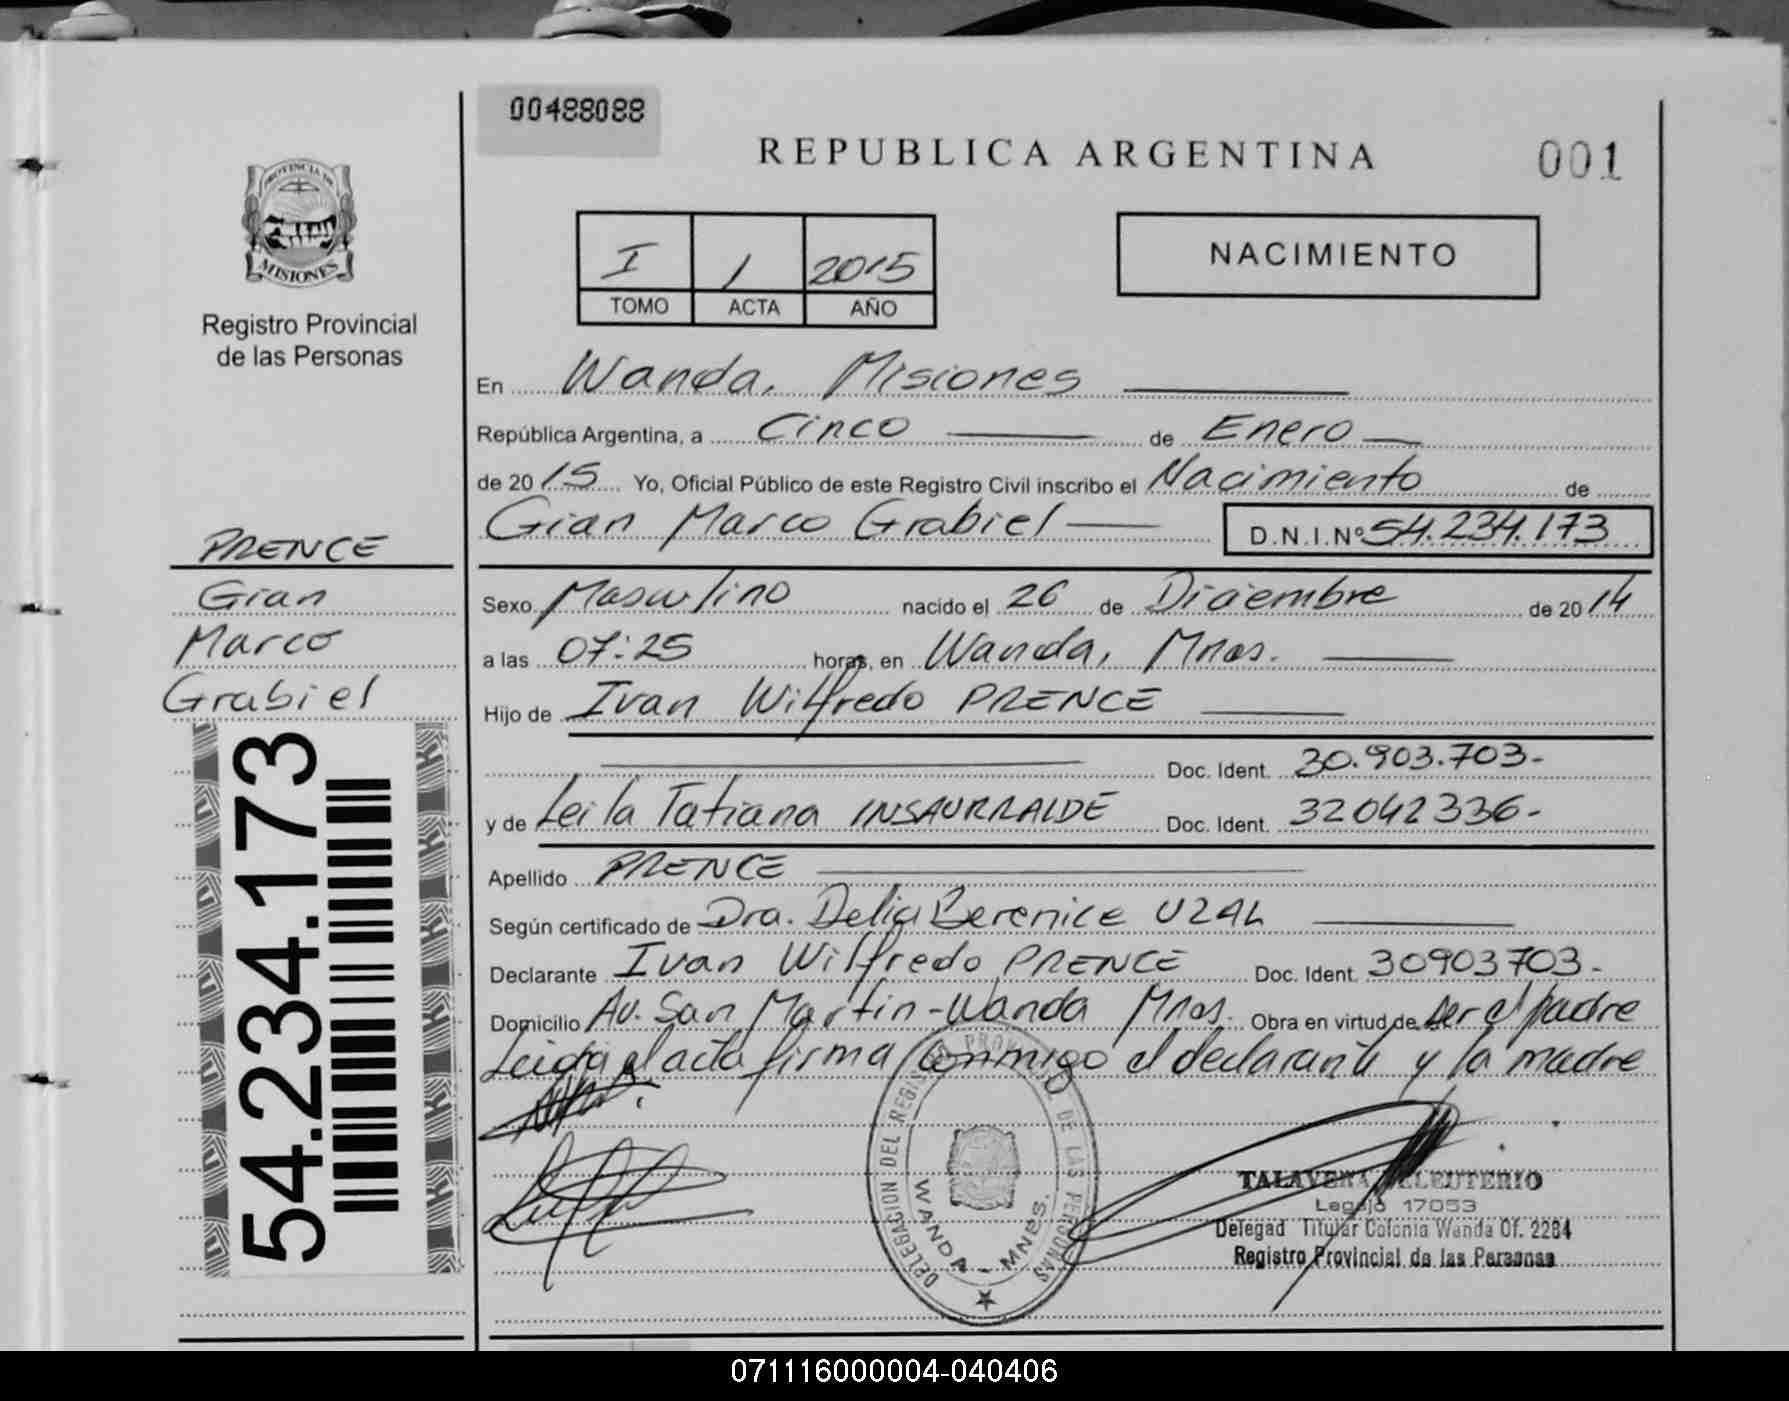 00488088
REPUBLICA ARGENTINA
001
PROVINCIA DE
MISIONES
Registro Provincial
de las Personas
I 1 2015
TOMO ACTA AÑO
NACIMIENTO
En Wanda, Misiones
República Argentina, a Cinco de Enero
de 2015 Yo, Oficial Público de este Registro Civil inscribo el Nacimiento de
Gian Marco Grabiel D.N.I.Nº 54.234.173
PRENCE
Gian
Marco
Grabiel
54.234.173
Sexo Masculino nacido el 26 de Diciembre de 2014
a las 07:25 horas, en Wanda, Mnes.
Hijo de Ivan Wilfredo PRENCE
Doc. Ident. 30.903.703-
y de Leila Tatiana INSAURRALDE Doc. Ident. 32042336-
Apellido PRENCE
Según certificado de Dra. Delia Berenice UZAL
Declarante Ivan Wilfredo PRENCE Doc. Ident. 30903703-
Domicilio Av. San Martin-Wanda Mnes. Obra en virtud de ser el padre
Leida el acta firma conmigo el declarante y la madre
DELEGACION DEL REGISTRO PROVINCIAL DE LAS PERSONAS
WANDA - MNES.
TALAVERA ELEUTERIO
Legajo 17053
Delegad Titular Colonia Wanda Of. 2284
Registro Provincial de las Personas
071116000004-040406